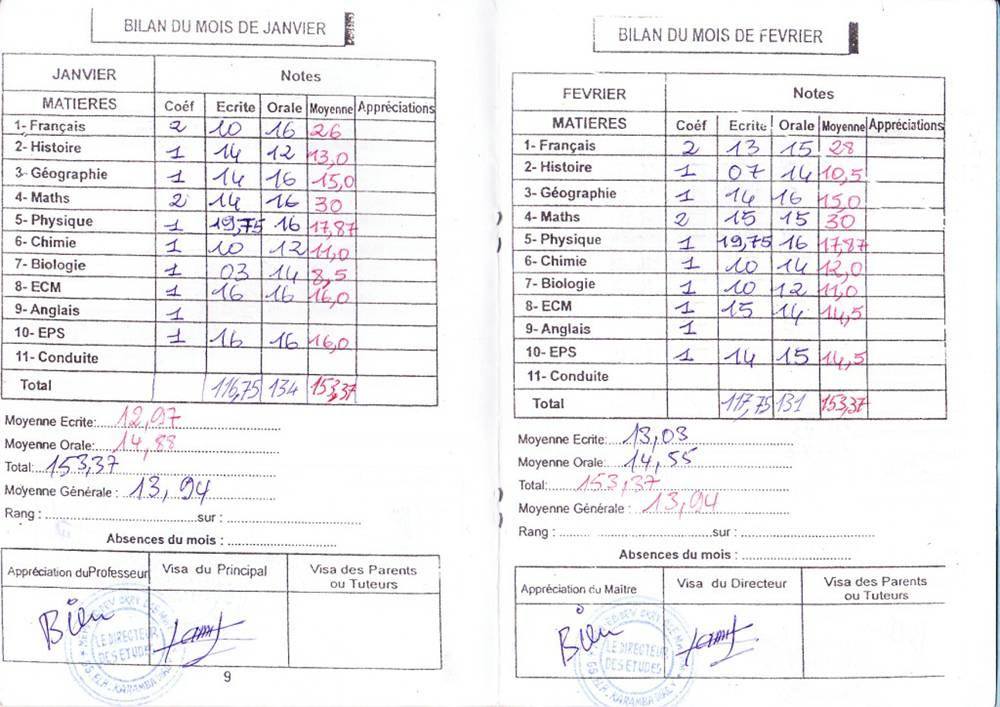 BILAN DU MOIS DE JANVIER
JANVIER Notes
MATIERES Coéf Ecrite Orale Moyenne Appréciations
1- Français 2 10 16 26
2- Histoire 1 14 12 13,0
3- Géographie 1 14 16 15,0
4- Maths 2 14 16 30
5- Physique 1 19,75 16 17,87
6- Chimie 1 10 12 11,0
7- Biologie 1 03 14 8,5
8- ECM 1 16 16 16,0
9- Anglais 1
10- EPS 1 16 16 16,0
11- Conduite
Total 116,75 134 153,37
Moyenne Ecrite: 12,97
Moyenne Orale: 14,88
Total: 153,37
Moyenne Générale : 13,94
Rang : sur :
Absences du mois :
Appréciation du Professeur Visa du Principal Visa des Parents ou Tuteurs
Bien
LE DIRECTEUR
DES ETUDES
9
BILAN DU MOIS DE FEVRIER
FEVRIER Notes
MATIERES Coéf Ecrite Orale Moyenne Appréciations
1- Français 2 13 15 28
2- Histoire 1 07 14 10,5
3- Géographie 1 14 16 15,0
4- Maths 2 15 15 30
5- Physique 1 19,75 16 17,87
6- Chimie 1 10 14 12,0
7- Biologie 1 10 12 11,0
8- ECM 1 15 14 14,5
9- Anglais 1
10- EPS 1 14 15 14,5
11- Conduite
Total 117,75 131 153,37
Moyenne Ecrite: 13,03
Moyenne Orale: 14,55
Total: 153,37
Moyenne Générale : 13,94
Rang : sur :
Absences du mois :
Appréciation du Maître Visa du Directeur Visa des Parents ou Tuteurs
Bien
LE DIRECTEUR
DES ETUDES